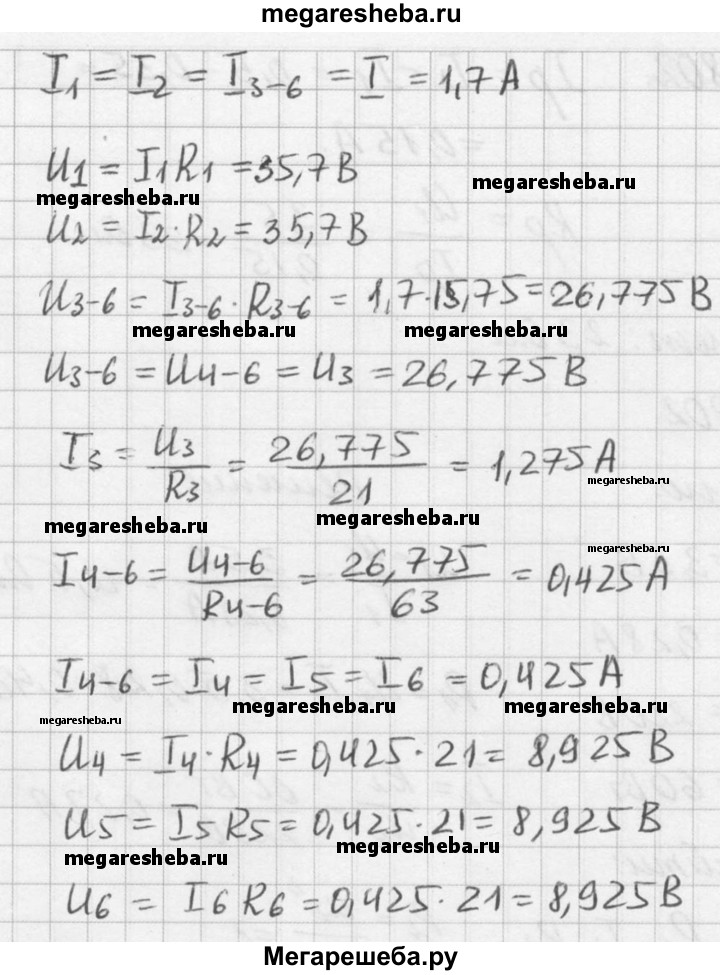 megaresheba.ru
I₁ = I₂ = I₃₋₆ = I = 1,7 А
U₁ = I₁R₁ = 35,7 В
megaresheba.ru
megaresheba.ru
U₂ = I₂·R₂ = 35,7 В
U₃₋₆ = I₃₋₆ · R₃₋₆ = 1,7·15,75 = 26,775 В
megaresheba.ru megaresheba.ru
U₃₋₆ = U₄₋₆ = U₃ = 26,775 В
I₃ = U₃/R₃ = 26,775/21 = 1,275 А
megaresheba.ru
megaresheba.ru
megaresheba.ru
megaresheba.ru
I₄₋₆ = U₄₋₆/R₄₋₆ = 26,775/63 = 0,425 А
I₄₋₆ = I₄ = I₅ = I₆ = 0,425 А
megaresheba.ru megaresheba.ru megaresheba.ru
U₄ = I₄·R₄ = 0,425·21 = 8,925 В
U₅ = I₅R₅ = 0,425·21 = 8,925 В
megaresheba.ru megaresheba.ru
U₆ = I₆R₆ = 0,425·21 = 8,925 В
Мегарешеба.ру